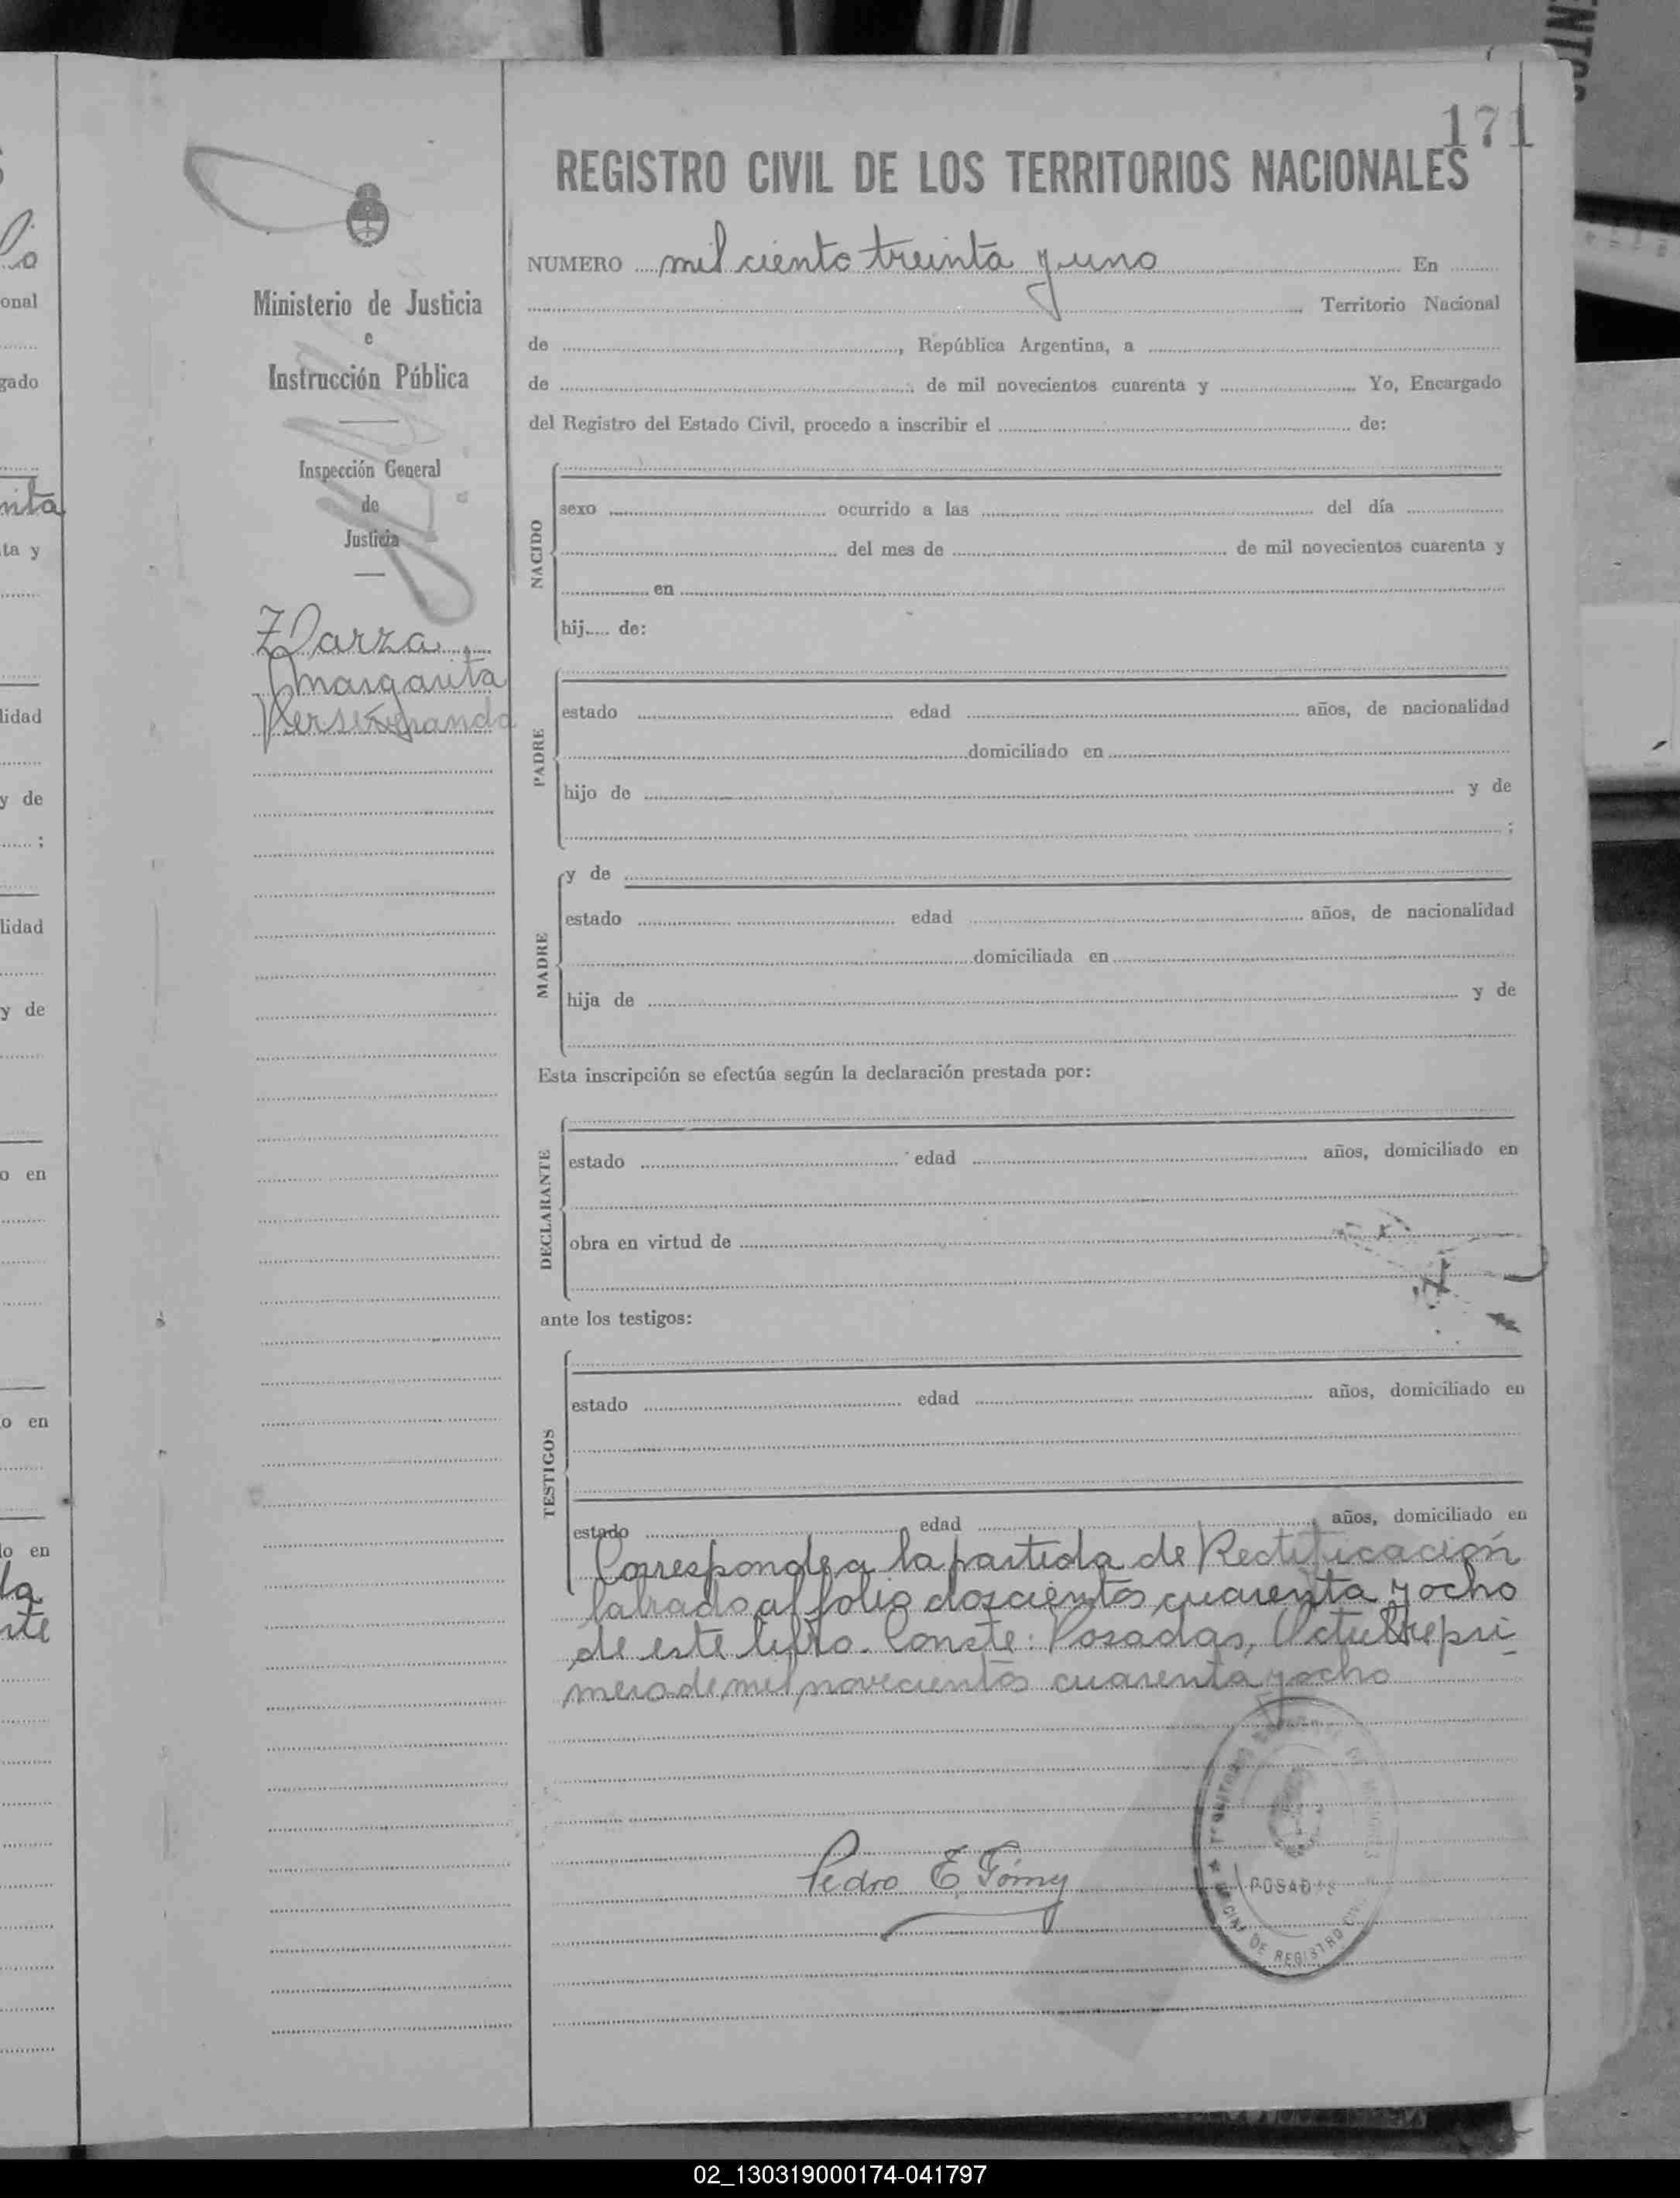 171
REGISTRO CIVIL DE LOS TERRITORIOS NACIONALES
NUMERO mil ciento treinta y uno En
Territorio Nacional
de , República Argentina, a
de de mil novecientos cuarenta y Yo, Encargado
del Registro del Estado Civil, procedo a inscribir el de:
Ministerio de Justicia
e
Instrucción Pública
Inspección General
de
Justicia
Darza
Margarita
NACIDO
sexo ocurrido a las del día
del mes de de mil novecientos cuarenta y
en
hij de:
PADRE
estado edad años, de nacionalidad
domiciliado en
hijo de y de
;
MADRE
y de
estado edad años, de nacionalidad
domiciliada en
hija de y de
Esta inscripción se efectúa según la declaración prestada por:
DECLARANTE
estado edad años, domiciliado en
obra en virtud de
ante los testigos:
TESTIGOS
estado edad años, domiciliado en
estado edad años, domiciliado en
Corresponde a la partida de Rectificación
labrado al folio doscientos cuarenta y ocho
de este libro. Conste: Posadas, Octubre pri-
mero de mil novecientos cuarenta y ocho
Pedro E.
POSADAS
DE REGISTRO
02_130319000174-041797